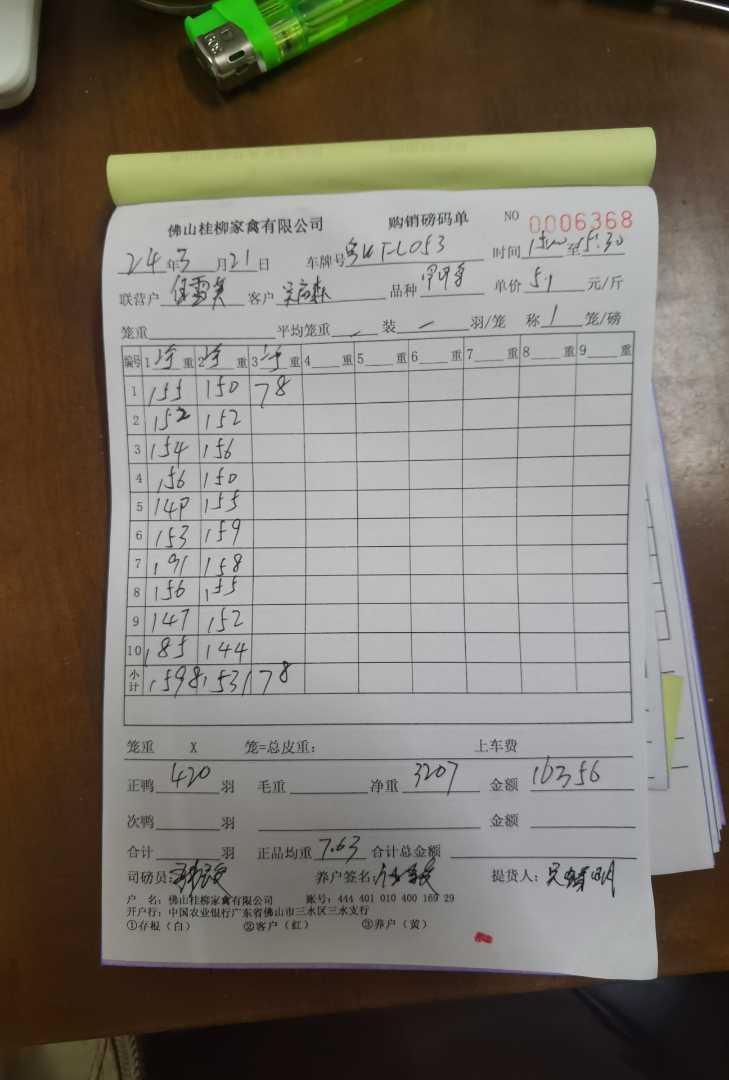 佛山桂柳家禽有限公司 购销磅码单 NO 0006368
24年3月21日 车牌号 时间 至15:30
联营户 客户 品种 单价5.1元/斤
笼重 平均笼重 装 一 羽/笼 称1笼/磅
编号 1净重 2净重 3净重 4重 5重 6重 7重 8重 9重
1 155 150 78
2 152 152
3 154 156
4 156 150
5 155
6 153 159
7 191 158
8 156 155
9 147 152
10 185 144
小计 1598 1531 78
笼重 X 笼=总皮重: 上车费
正鸭420羽 毛重 净重3207 金额16356
次鸭 羽 金额
合计 羽 正品均重7.63 合计总金额
司磅员: 养户签名: 提货人:
户 名: 佛山桂柳家禽有限公司 账号: 444 401 010 400 169 29
开户行: 中国农业银行广东省佛山市三水区三水支行
①存根(白) ②客户(红) ③养户(黄)